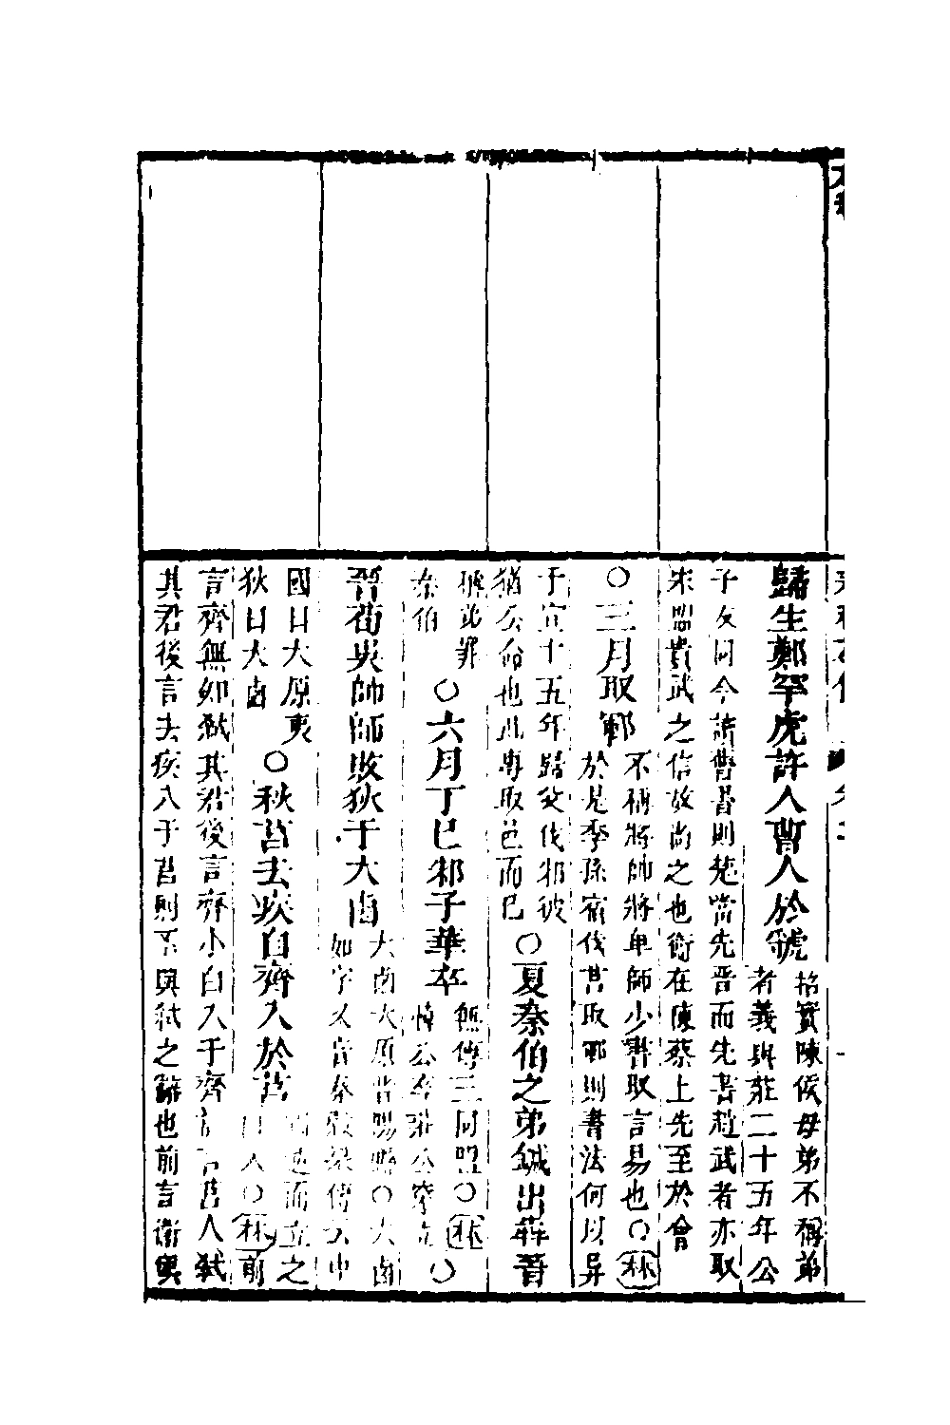 歸生鄭罕虎許人曹人於虢
招實陳侯母弟不稱弟
者義與莊二十五年公
子友同今讀舊書則楚當先晋而先書趙武者亦取
宋盟貴武之信故尚之也衛在陳蔡上先至於會
○三月取鄆
不稱將帥將卑師少書取言易也○林
於是季孫宿伐莒取鄆則書法何以异
于宣十五年歸父伐邾彼
猶公命也此專取邑而已
○夏秦伯之弟鍼出奔晋
稱弟罪
秦伯
○六月丁巳邾子華卒
無傳三同盟○林
悼公卒莊公穿立
○
晋荀吳帥師敗狄于大鹵
大鹵大原晋陽縣○大鹵
如字又音泰
傳大中
國曰大原夷
狄曰大鹵
○秋莒去疾自齊入於莒
而立之
曰入○林前
言齊無知弑其君後言齊小白入于齊
言莒人弑
其君後言去疾入于莒則不與弑之辭也前言衛與